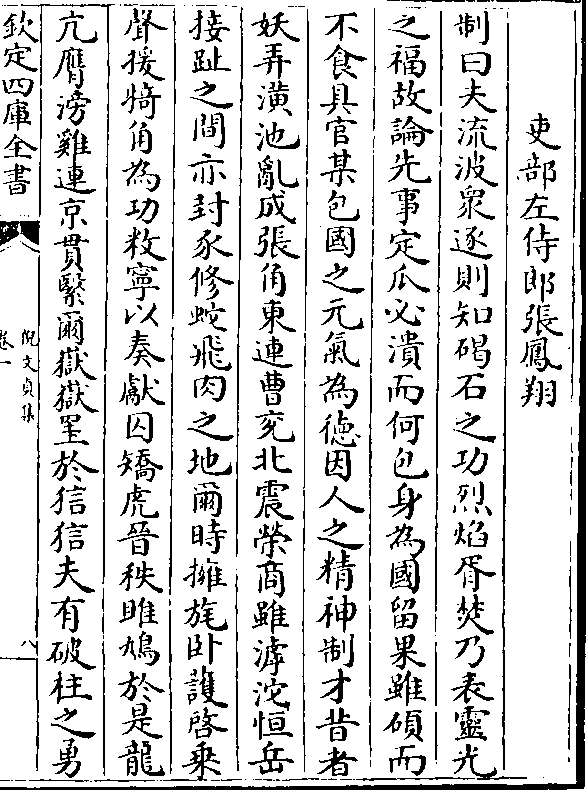 吏部左侍郎張鳳翔
制曰夫流波衆逐則知碣石之功烈焰胥焚乃表靈光
之福故論先事定瓜必潰而何包身為國留果雖碩而
不食具官某包國之元氣為徳因人之精神制才昔者
妖弄潢池亂成張角東連曹兖北震榮商雖滹沱恒岳
接趾之間亦封豕修蛇飛肉之地爾時擁旄卧護啓乗
聲援犄角為功敉寧以奏獻囚矯虎晉秩雎鳩於是龍
亢膺滂雞連京貫繄爾嶽嶽罣於狺狺夫有破柱之勇
欽定四庫全書
倪文貞集
卷一
八